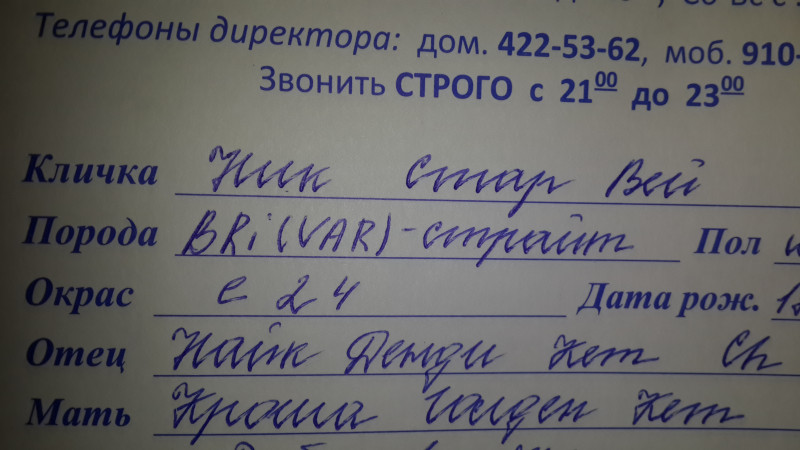 Телефоны директора: дом. 422-53-62, моб. 910-
Звонить СТРОГО с 21 00 до 23 00
Кличка Ник Стар Вей
Порода BRi (VAR) - страйт Пол
Окрас e 24 Дата рож.
Отец Найк Денди Кет Ch
Мать Кроша Голден Кет